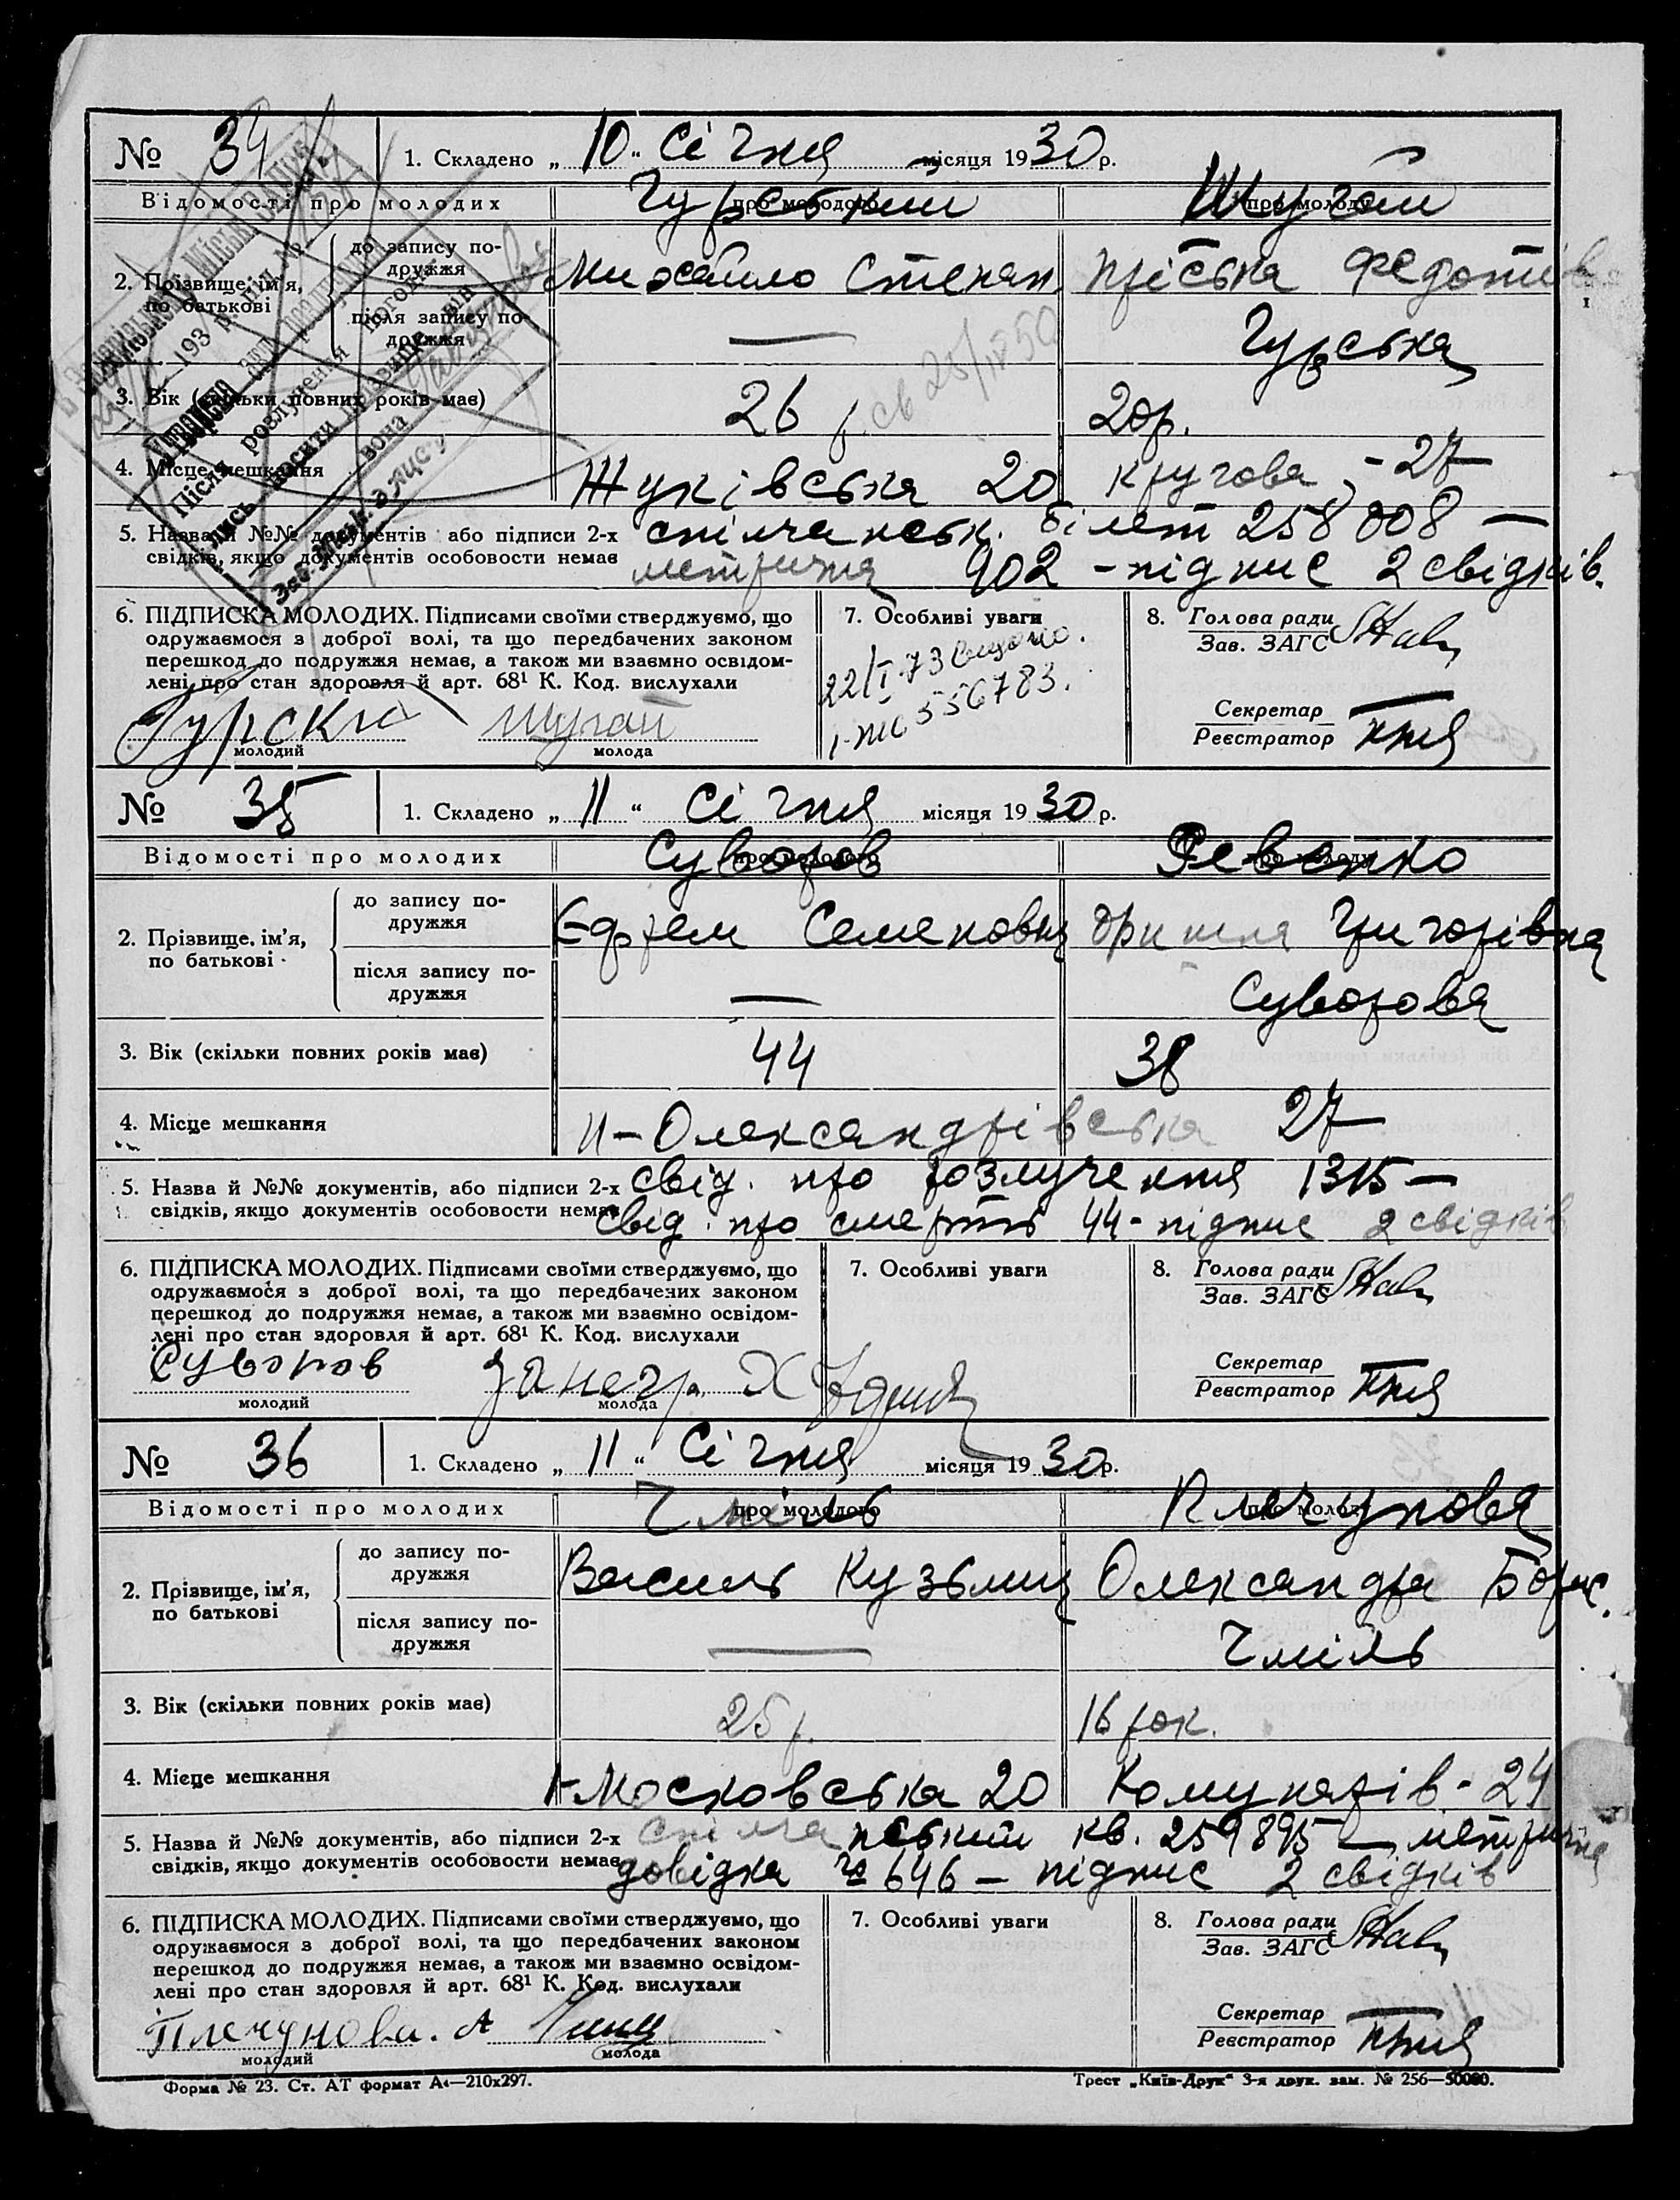 № 34 1. Складено „ 10 “ Січня місяця 1930 р.
Відомості про молодих про молодого про молоду
Гурський Шугай
2. Прізвище, ім'я, по батькові
до запису по-
дружжя
Михайло Степан. Пріська Федотівн
після запису по-
дружжя
— Гурська
3. Вік (скільки повних років має) 26 р. 20р.
4. Місце мешкання Жуківська 20 Кругова - 27
5. Назва й №№ документів або підписи 2-х спілчанськ. білет 258008 —
свідків, якщо документів особовости немає метрична 902 - підпис 2 свідків.
6. ПІДПИСКА МОЛОДИХ. Підписами своїми стверджуємо, що
одружаємося з доброї волі, та що передбачених законом
перешкод до подружжя немає, а також ми взаємно освідом-
лені про стан здоровля й арт. 68¹ К. Код. вислухали
Гурски Шугай
молодий молода
7. Особливі уваги
22/I-73 видано.
I-ЖС 556783.
8. Голова ради
Зав. ЗАГС
Секретар
Реєстратор
№ 35 1. Складено „ 11 “ Січня місяця 1930 р.
Відомості про молодих про молодого про молоду
Суворов Ревонко
2. Прізвище, ім'я,
по батькові
до запису по-
дружжя
Єфрем Семенович Оришка Григорівна
після запису по-
дружжя
— Суворова
3. Вік (скільки повних років має) 44 38
4. Місце мешкання Н-Олександрівська 27
5. Назва й №№ документів, або підписи 2-х свід. про розлучення 1315 —
свідків, якщо документів особовости немає свід. про смерть 44 - підпис 2 свідків
6. ПІДПИСКА МОЛОДИХ. Підписами своїми стверджуємо, що
одружаємося з доброї волі, та що передбачених законом
перешкод до подружжя немає, а також ми взаємно освідом-
лені про стан здоровля й арт. 68¹ К. Код. вислухали
Суворов
молодий молода
7. Особливі уваги
8. Голова ради
Зав. ЗАГС
Секретар
Реєстратор
№ 36 1. Складено „ 11 “ Січня місяця 1930 р.
Відомості про молодих про молодого про молоду
Чміль Плечунова
2. Прізвище, ім'я,
по батькові
до запису по-
дружжя
Василь Кузьмич Олександра Борис.
після запису по-
дружжя
— Чміль
3. Вік (скільки повних років має) 25 р. 16 рок.
4. Місце мешкання Московська 20 Комунарів - 24
5. Назва й №№ документів, або підписи 2-х спілчанський кв. 259895 — метрична
свідків, якщо документів особовости немає довідка № 646 — підпис 2 свідків
6. ПІДПИСКА МОЛОДИХ. Підписами своїми стверджуємо, що
одружаємося з доброї волі, та що передбачених законом
перешкод до подружжя немає, а також ми взаємно освідом-
лені про стан здоровля й арт. 68¹ К. Код. вислухали
Плечунова. А
молодий молода
7. Особливі уваги
8. Голова ради
Зав. ЗАГС
Секретар
Реєстратор
Форма № 23. Ст. АТ формат А₄—210х297. Трест „Київ-Друк“ 3-я друк. зам. № 256—50000.